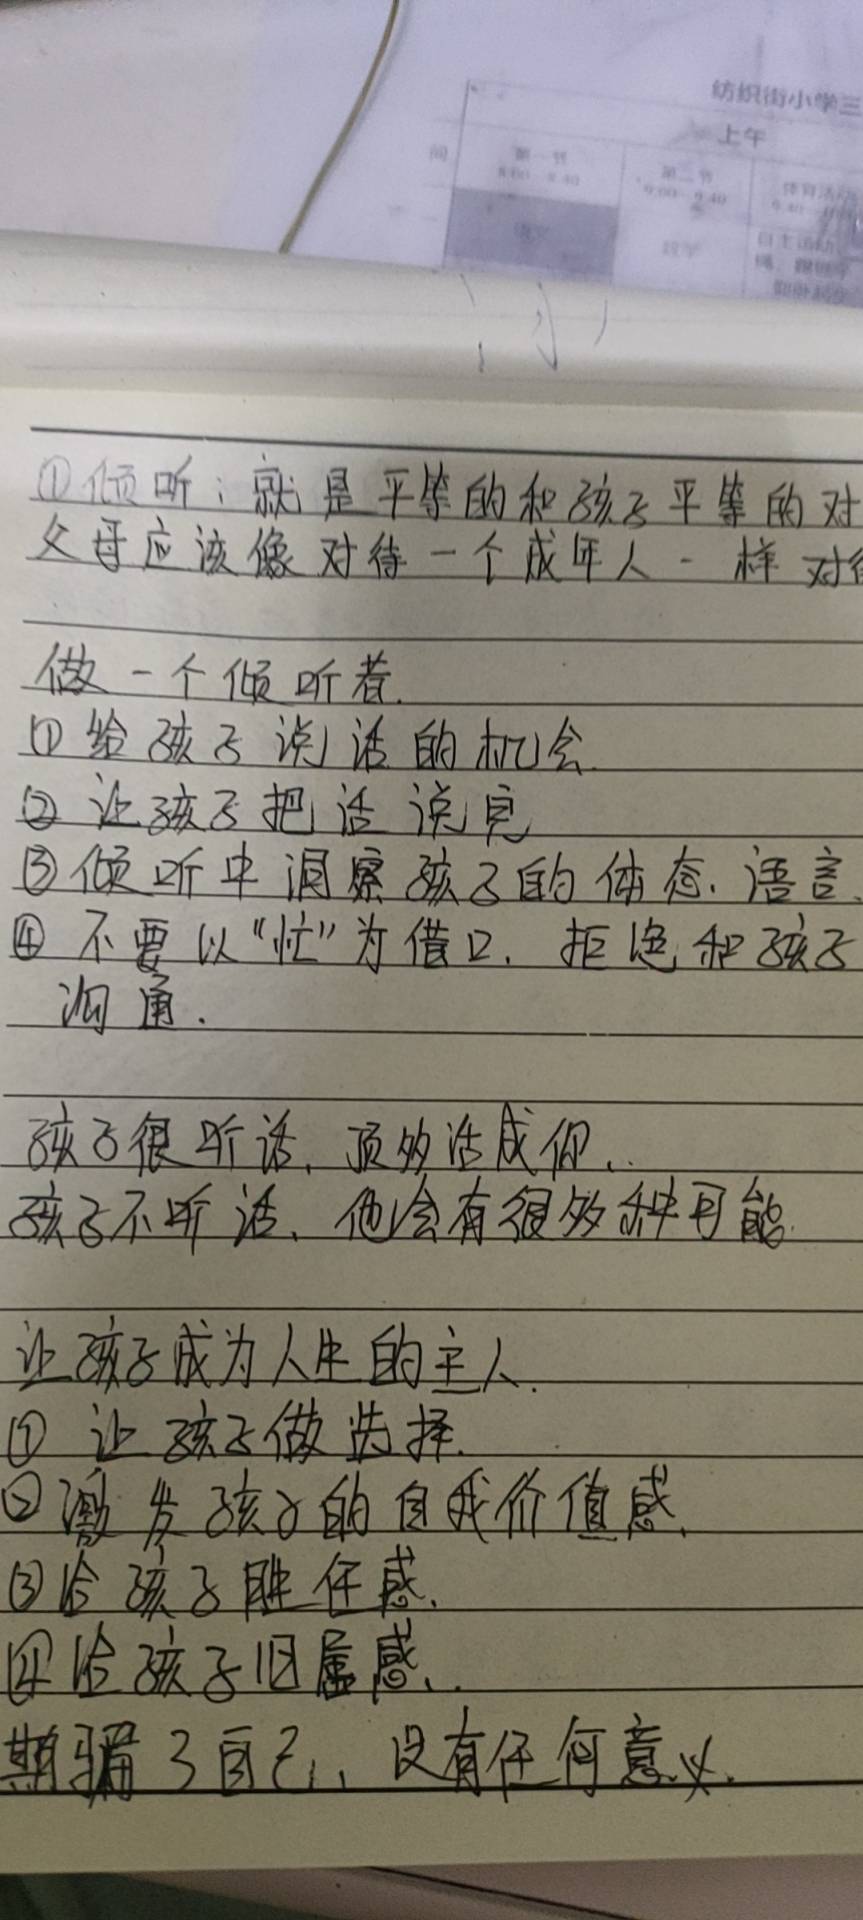 纺织街小学三
上午
第一节
8:00 8:40
第二节
9:00 9:40
①倾听：就是平等的和孩子平等的对
父母应该像对待一个成年人一样对待
做一个倾听着.
①给孩子说话的机会.
②让孩子把话说完
③倾听中洞察孩子的体态、语言.
④不要以“忙”为借口、拒绝和孩子
沟通.
孩子很听话、顶多活成你、.
孩子不听话、他会有很多种可能.
让孩子成为人生的主人.
①让孩子做选择.
②激发孩子的自我价值感.
③给孩子胜任感.
④给孩子归属感、.
期骗了自己、、没有任何意义.